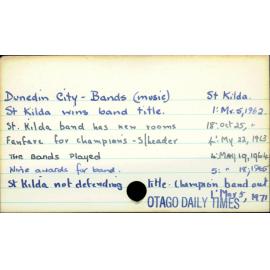 Dunedin City - Bands (music) St Kilda.
St Kilda wins band title. 1: Mr. 5, 1962
St. Kilda band has new rooms 18: Oct 25, "
Fanfare for champions - S/header 4: My. 22, 1963
The Bands Played 4: May, 19, 1964
Nine awards for band. 5: " 18, 1965
St Kilda not defending title. Champion band out
1: Mar 5, 1971
OTAGO DAILY TIMES